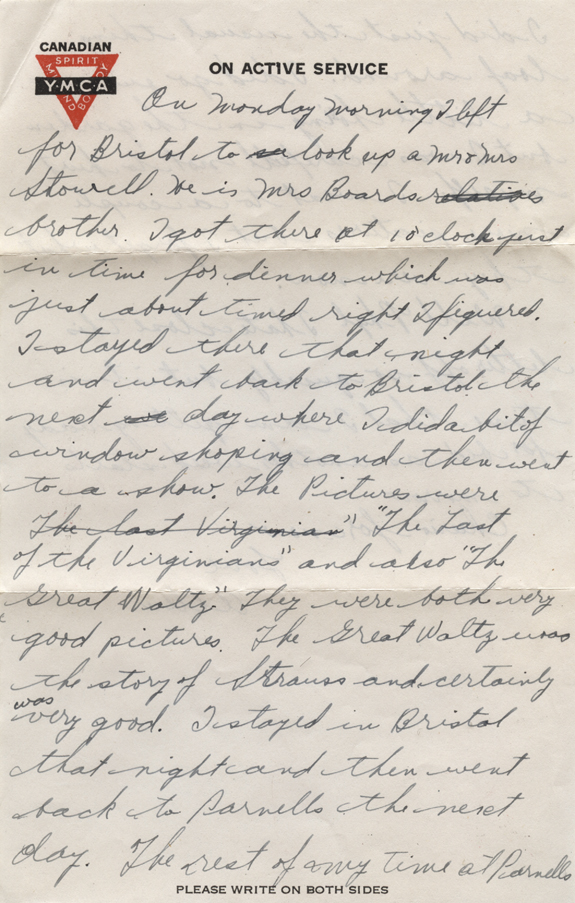 CANADIAN
SPIRIT
MIND
BODY
Y·M·C·A
ON ACTIVE SERVICE
On Monday morning I left
for Bristol to look up a Mr & Mrs
Showell. He is Mrs Boards relatives
brother. I got there at 1 o'clock just
in time for dinner which was
just about timed right I figuered.
I stayed there that night
and went back to Bristol the
next day where I did a bit of
window shoping and then went
to a show. The Pictures were
The last Virginian" "The Last
of the Virginians" and also "The
Great Waltz" They were both very
good pictures. The Great Waltz was
the story of Strauss and certainly
was
very good. I stayed in Bristol
that night and then went
back to Parnells the next
day. The rest of my time at Parnells
PLEASE WRITE ON BOTH SIDES